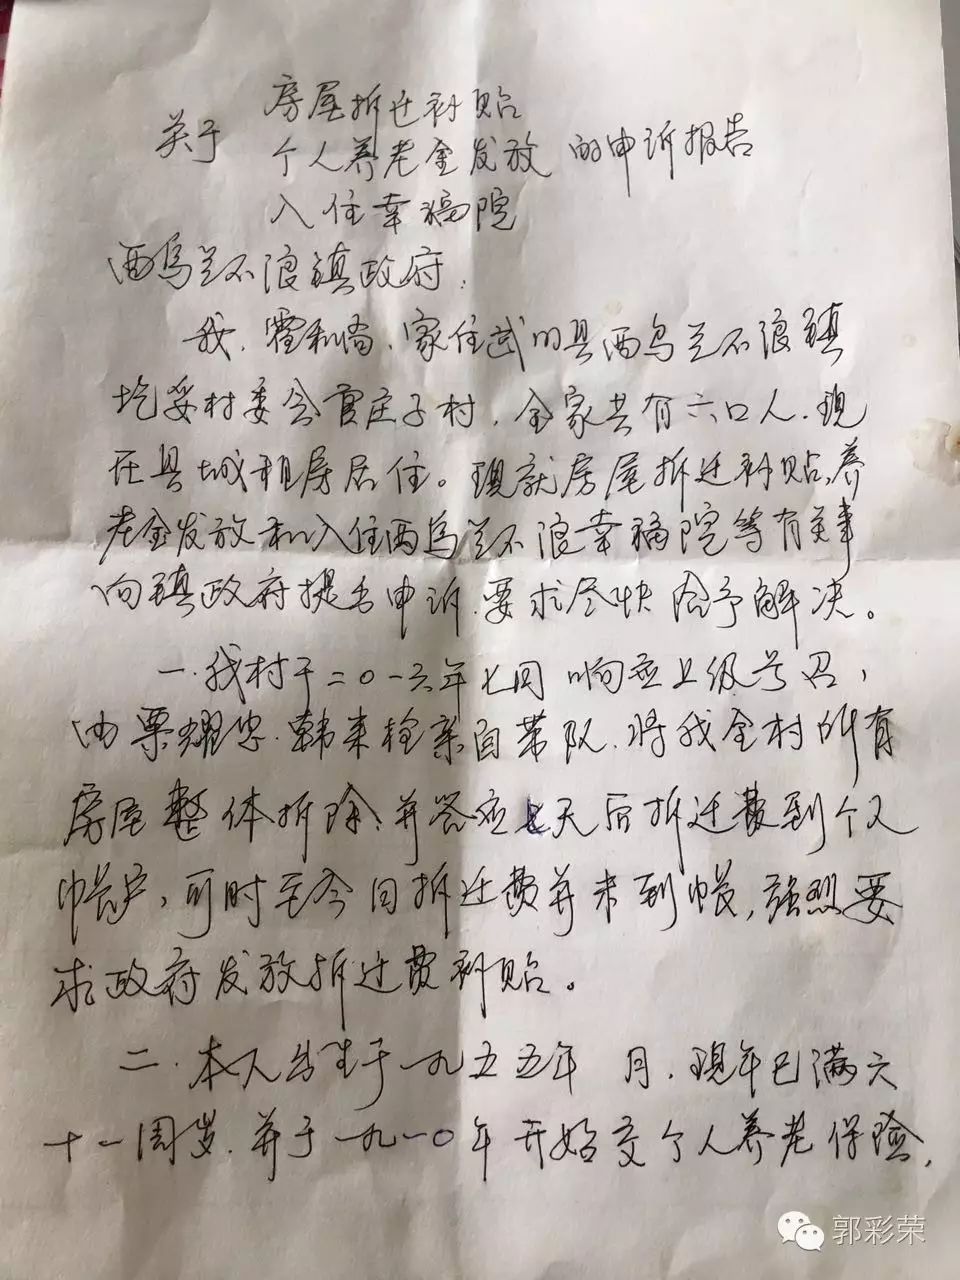 房屋拆迁补贴
关于 个人养老金发放 的申诉报告
入住幸福院
西乌兰不浪镇政府:
我,霍和尚,家住武川县西乌兰不浪镇
圪妥村委会官庄子村,全家共有六口人.现
在县城租房居住。现就房屋拆迁补贴,养
老金发放和入住西乌兰不浪幸福院等有关事
向镇政府提出申诉,要求尽快给予解决。
一.我村于二〇一六年七月响应上级号召,
由票耀忠.韩来栓亲自带队.将我全村所有
房屋整体拆除.并答应七天后拆迁费到个人
帐户,可时至今日拆迁费并未到帐,强烈要
求政府发放拆迁费补贴。
二.本人出生于一九五五年 月.现年已满六
十一周岁.并于一九一〇年开始交个人养老保险,
郭彩荣